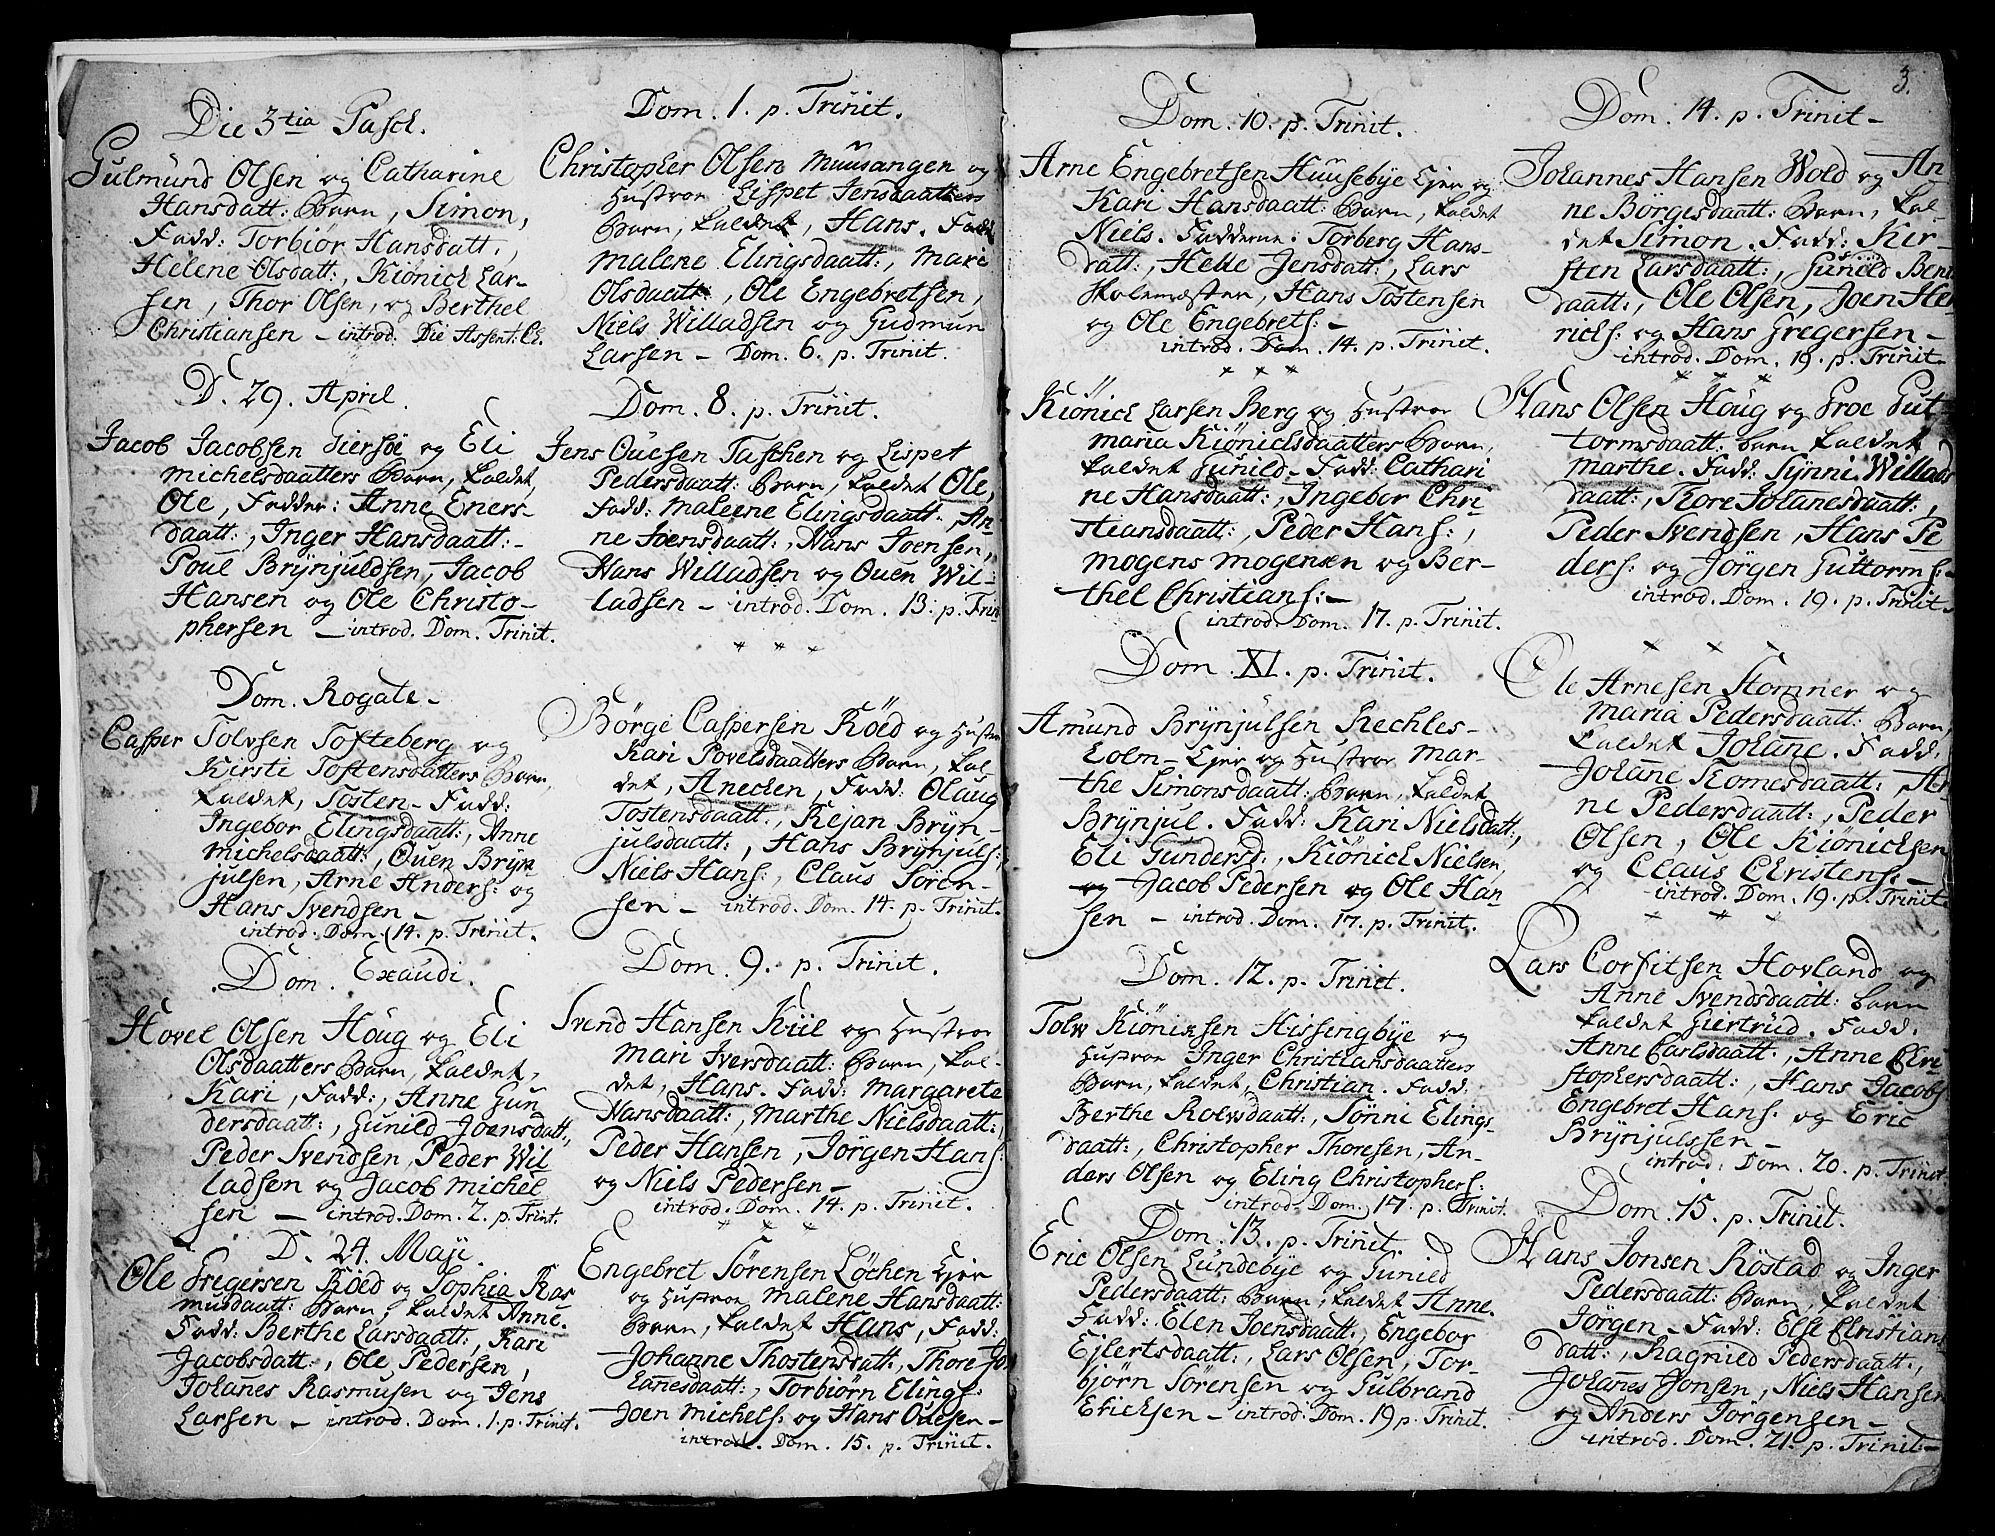 Die 3tia Pasch.
Gulmund Olsen og Catharine
Hansdatt: Barn, Simon,
Fadd: Torbiör Hansdatt.,
Helene Olsdatt:, Kiönich Lar-
sen, Thor Olsen, og Berthel
Christiansen – introd. Die Assent: Ch.
D. 29. April.
Jacob Jacobsen Tiersöe og Eli
Michelsdaatters Barn, kaldet,
Ole, Fadder: Anne Eners-
daatt:, Inger Hansdaatt:-
Poul Brynjuldsen, Jacob
Hansen og Ole Christo-
phersen – introd. Dom. Trinit.
Dom. Rogate –
Casper Tolvsen Tofteberg og
Kirsti Tostensdatters Barn,
kaldet, Tosten – Fadd:
Ingebor Elingsdaatt:, Anne
Michelsdaatt:, Ouen Bryn-
julsen, Arne Anders: og
Hans Svendsen –
introd. Dom. 14. p. Trinit.
Dom. Exaudi.
Hovel Olsen Houg og Eli
Olsdaatters Barn, kaldet,
Kari, Fadd:, Anne Gun
dersdaatt:, Gunild Joensdatt,
Peder Svendsen, Peder Wil
ladsen og Jacob Michel
sen – introd. Dom. 2. p. Trinit.
D. 24. Maji.
Ole Gregersen Röed og Sophia Ras
musdaatt: Barn, kaldet Anne.
Fadd: Berthe Larsdaatt:, Kari
Jacobsdatt:, Ole Pedersen,
Johanes Rasmusen og Jens
Larsen – introd. Dom. 1. p. Trinit.
Dom. 1. p. Trinit.
Christopher Olsen Muusangen og
Hustroe Lispet Jensdaatters
Barn, kaldet, Hans. Fadd
Malene Elingsdaatt:, Mari
Olsdaatt:, Ole Engebretsen,
Niels Willadsen og Gudmun
Larsen – Dom. 6. p. Trinit.
Dom. 8. p. Trinit.
Jens Ouesen Taschen og Lispet
Pedersdaatt: Barn, kaldet Ole,
Fadd: Maleene Elingsdaatt. An-
ne Joensdaatt:, Hans Joensen,
Hans Willadsen og Ouen Wil-
ladsen – introd. Dom. 13. p. Trin
* * *
Börge Caspersen Röed og Hustro
Kari Povelsdaatters Barn, kal
det, Anechen, Fadd: Olaug
Tostensdaatt., Rejan Bryn-
julsdaatt:, Hans Brynjuls:,
Niels Hans:, Claus Sören-
sen – introd. Dom. 14. p. Trinit.
Dom. 9. p. Trinit.
Svend Hansen Kiil og Hustroe
Mari Iversdaatt: Barn, kal-
det, Hans. Fadd: Margarete
Hansdaatt:, Marthe Nielsdaatt:,
Peder Hansen, Jörgen Hans:
og Niels Pedersen –
introd. Dom. 14. p. Trinit.
* * *
Engebret Sörensen Löchen Ejer
og Hustroe Malene Hansdaatt:
Barn, kaldet Hans, Fadd:
Johanne Thostensdatt., Thore Jo
hannesdaatt:, Torbiörn Elings:
Joen Michels: og Hans Ouesen –
introd. Dom. 15. p. Trinit.
3.
Dom. 10. p. Trinit.
Arne Engebretsen Huusebye Ejer og
Kari Hansdaatt: Barn, kaldet
Niels. Fadderne: Torberg Hans-
datt:, Helle Jensdatt:, Lars
Skolemester, Hans Tostensen
og Ole Engebrets: –
introd. Dom. 14. p. Trinit.
* * *
Kiönich Larsen Berg og Hustroe
Maria Kiönichsdaatters Barn,
kaldet Gunild – Fadd: Cathari
ne Hansdaatt:, Ingebor Chri
stiansdaatt:, Peder Hans:,
Mogens Mogensen og Ber-
thel Christians: –
introd. Dom. 17. p. Trinit.
Dom. XI. p. Trinit.
Amund Brynjulsen Rechles-
holm – Ejer og Hustroe Mar-
the Simonsdaatt: Barn, kaldet
Brynjul. Fadd: Kari Nielsdatt:,
Eli Gundersd:, Kiönich Nielsen,
og Jacob Pedersen og Ole Han
sen – introd. Dom. 17. p. Trinit.
Dom. 12. p. Trinit.
Tolv Kiönixsen Hissingbye og
Hustroe Inger Christiansdaatters
Barn, kaldet, Christian. Fadd:
Berthe Rolvsdaatt:, Sönni Elings-
daatt:, Christopher Thoresen, An-
ders Olsen og Eling Christophers:
introd. Dom. 17. p. Trinit.
Dom. 13. p. Trinit.
Eric Olsen Lundebye og Gunild
Pedersdaatt: Barn, kaldet Anne.
Fadd: Elen Joensdaatt., Engebor
Ejlertsdaatt:, Lars Olsen, Tor-
björn Sörensen og Gulbrand
Ericksen – introd. Dom. 19 p. Trinit.
Dom. 14. p. Trinit –
Johannes Hansen Wold og An
ne Börgesdaatt: Barn, kal-
det Simon. Fadd: Kir-
sten Larsdaatt:, Gunild Bent
daatt:, Ole Olsen, Joen Hen
richs: og Hans Gregersen –
introd. Dom. 19. p. Trinit
* * *
Hans Olsen Houg og Groe Gut-
tormsdaatt: Barn kaldet
Marthe. Fadd: Synni Willads
daatt:, Thore Johanesdaatt:,
Peder Svendsen, Hans Pe
ders: og Jörgen Guttorms: –
introd. Dom. 19. p. Trinit –
* * *
Ole Arnesen Stomner og
Maria Pedersdaatt: Barn,
kaldet Johane. Fadd.
Johane Romesdaatt:, An
ne Pedersdaatt:, Peder
Olsen, Ole Kiönichsen
og Claus Christens: –
introd. Dom. 19. p. Trinit
* * *
Lars Corfitsen Hovland og
Anne Svendsdaatt: Barn
kaldet Giertrud. Fadd.
Anne Carlsdaatt:, Anne Chri
stophersdaatt:, Hans Jacobs
Engebret Hans: og Eric
Brynjulssen –
introd: Dom. 20. p. Trinit
Dom. 15. p. Trinit.
Hans Jonsen Röstad og Inger
Pedersdaatt: Barn, kaldet
Jörgen – Fadd: Else Christians
datt:, Ragnild Pedersdaatt:,
Johanes Jonsen, Niels Hansen
og Anders Jörgensen –
introd. Dom. 21. p. Trinit –